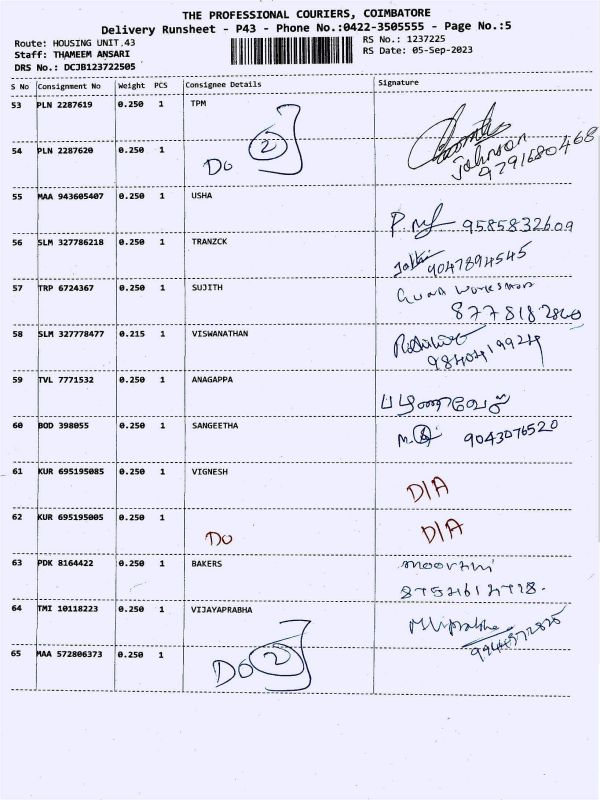 THE PROFESSIONAL COURIERS, COIMBATORE
Delivery Runsheet - P43 - Phone No.:0422-3505555 - Page No.:5
Route: HOUSING UNIT.43
RS No.: 1237225
Staff: THAMEEM ANSARI
RS Date: 05-Sep-2023
DRS No.: DCJB123722505
S No Consignment No Weight PCS Consignee Details Signature
53 PLN 2287619 0.250 1 TPM
54 PLN 2287620 0.250 1 Do 2 Johnson
9791680468
55 MAA 943605407 0.250 1 USHA
9585832609
56 SLM 327786218 0.250 1 TRANZCK
9047894545
57 TRP 6724367 0.250 1 SUJITH
8778187860
58 SLM 327778477 0.215 1 VISWANATHAN
9840419924
59 TVL 7771532 0.250 1 ANAGAPPA
பழனிவேல்
60 BOD 398055 0.250 1 SANGEETHA 9043076520
61 KUR 695195085 0.250 1 VIGNESH
D/A
62 KUR 695195005 0.250 1 Do D/A
63 PDK 8164422 0.250 1 BAKERS
64 TMI 10118223 0.250 1 VIJAYAPRABHA
65 MAA 572806373 0.250 1 Do 2